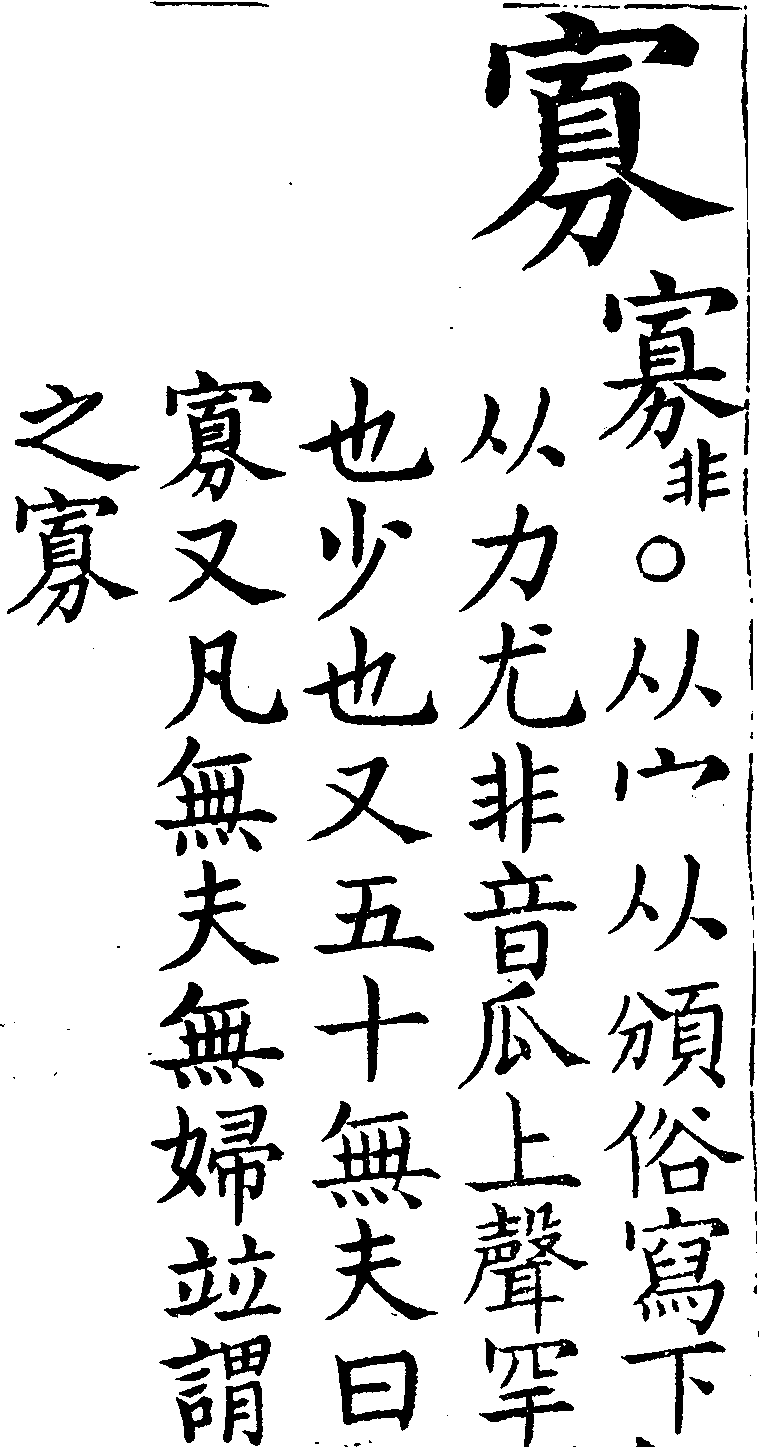 寡
寡非○从宀从頒俗寫下
从力尤非音瓜上聲罕
也少也又五十無夫曰
寡又凡無夫無婦竝謂
之寡